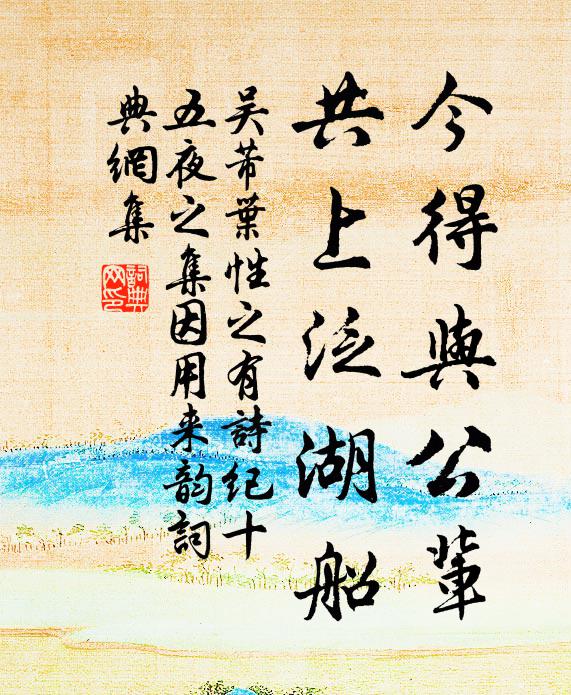 今得與公輩
共上泛湖船
吴芾葉性之有詩纪十
五夜之集因用来韵詞
典網集
詞典
网印